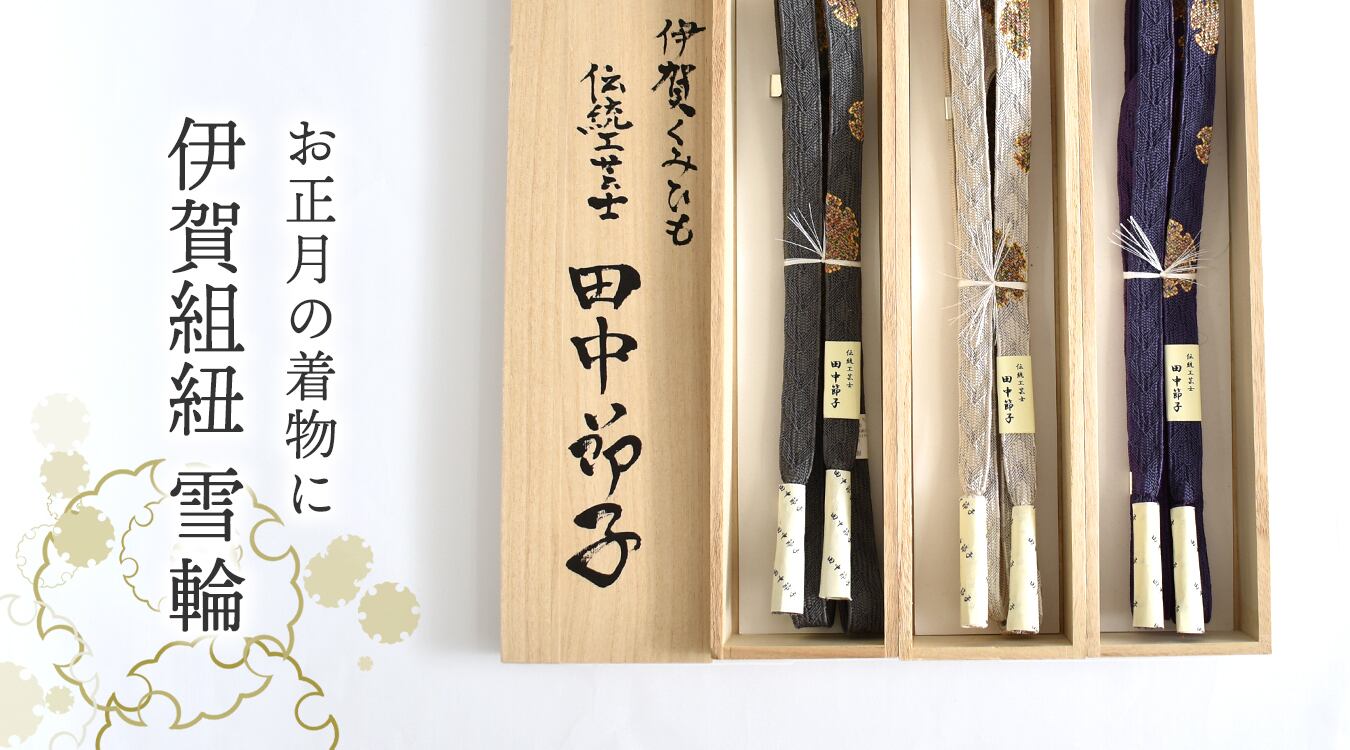 お正月の着物に
伊賀組紐 雪輪
伊賀くみひも
伝統工芸士
田中節子
伝統工芸士
田中節子
伝統工芸士
田中節子
伝統工芸士
田中節子
田中節子
田中節子